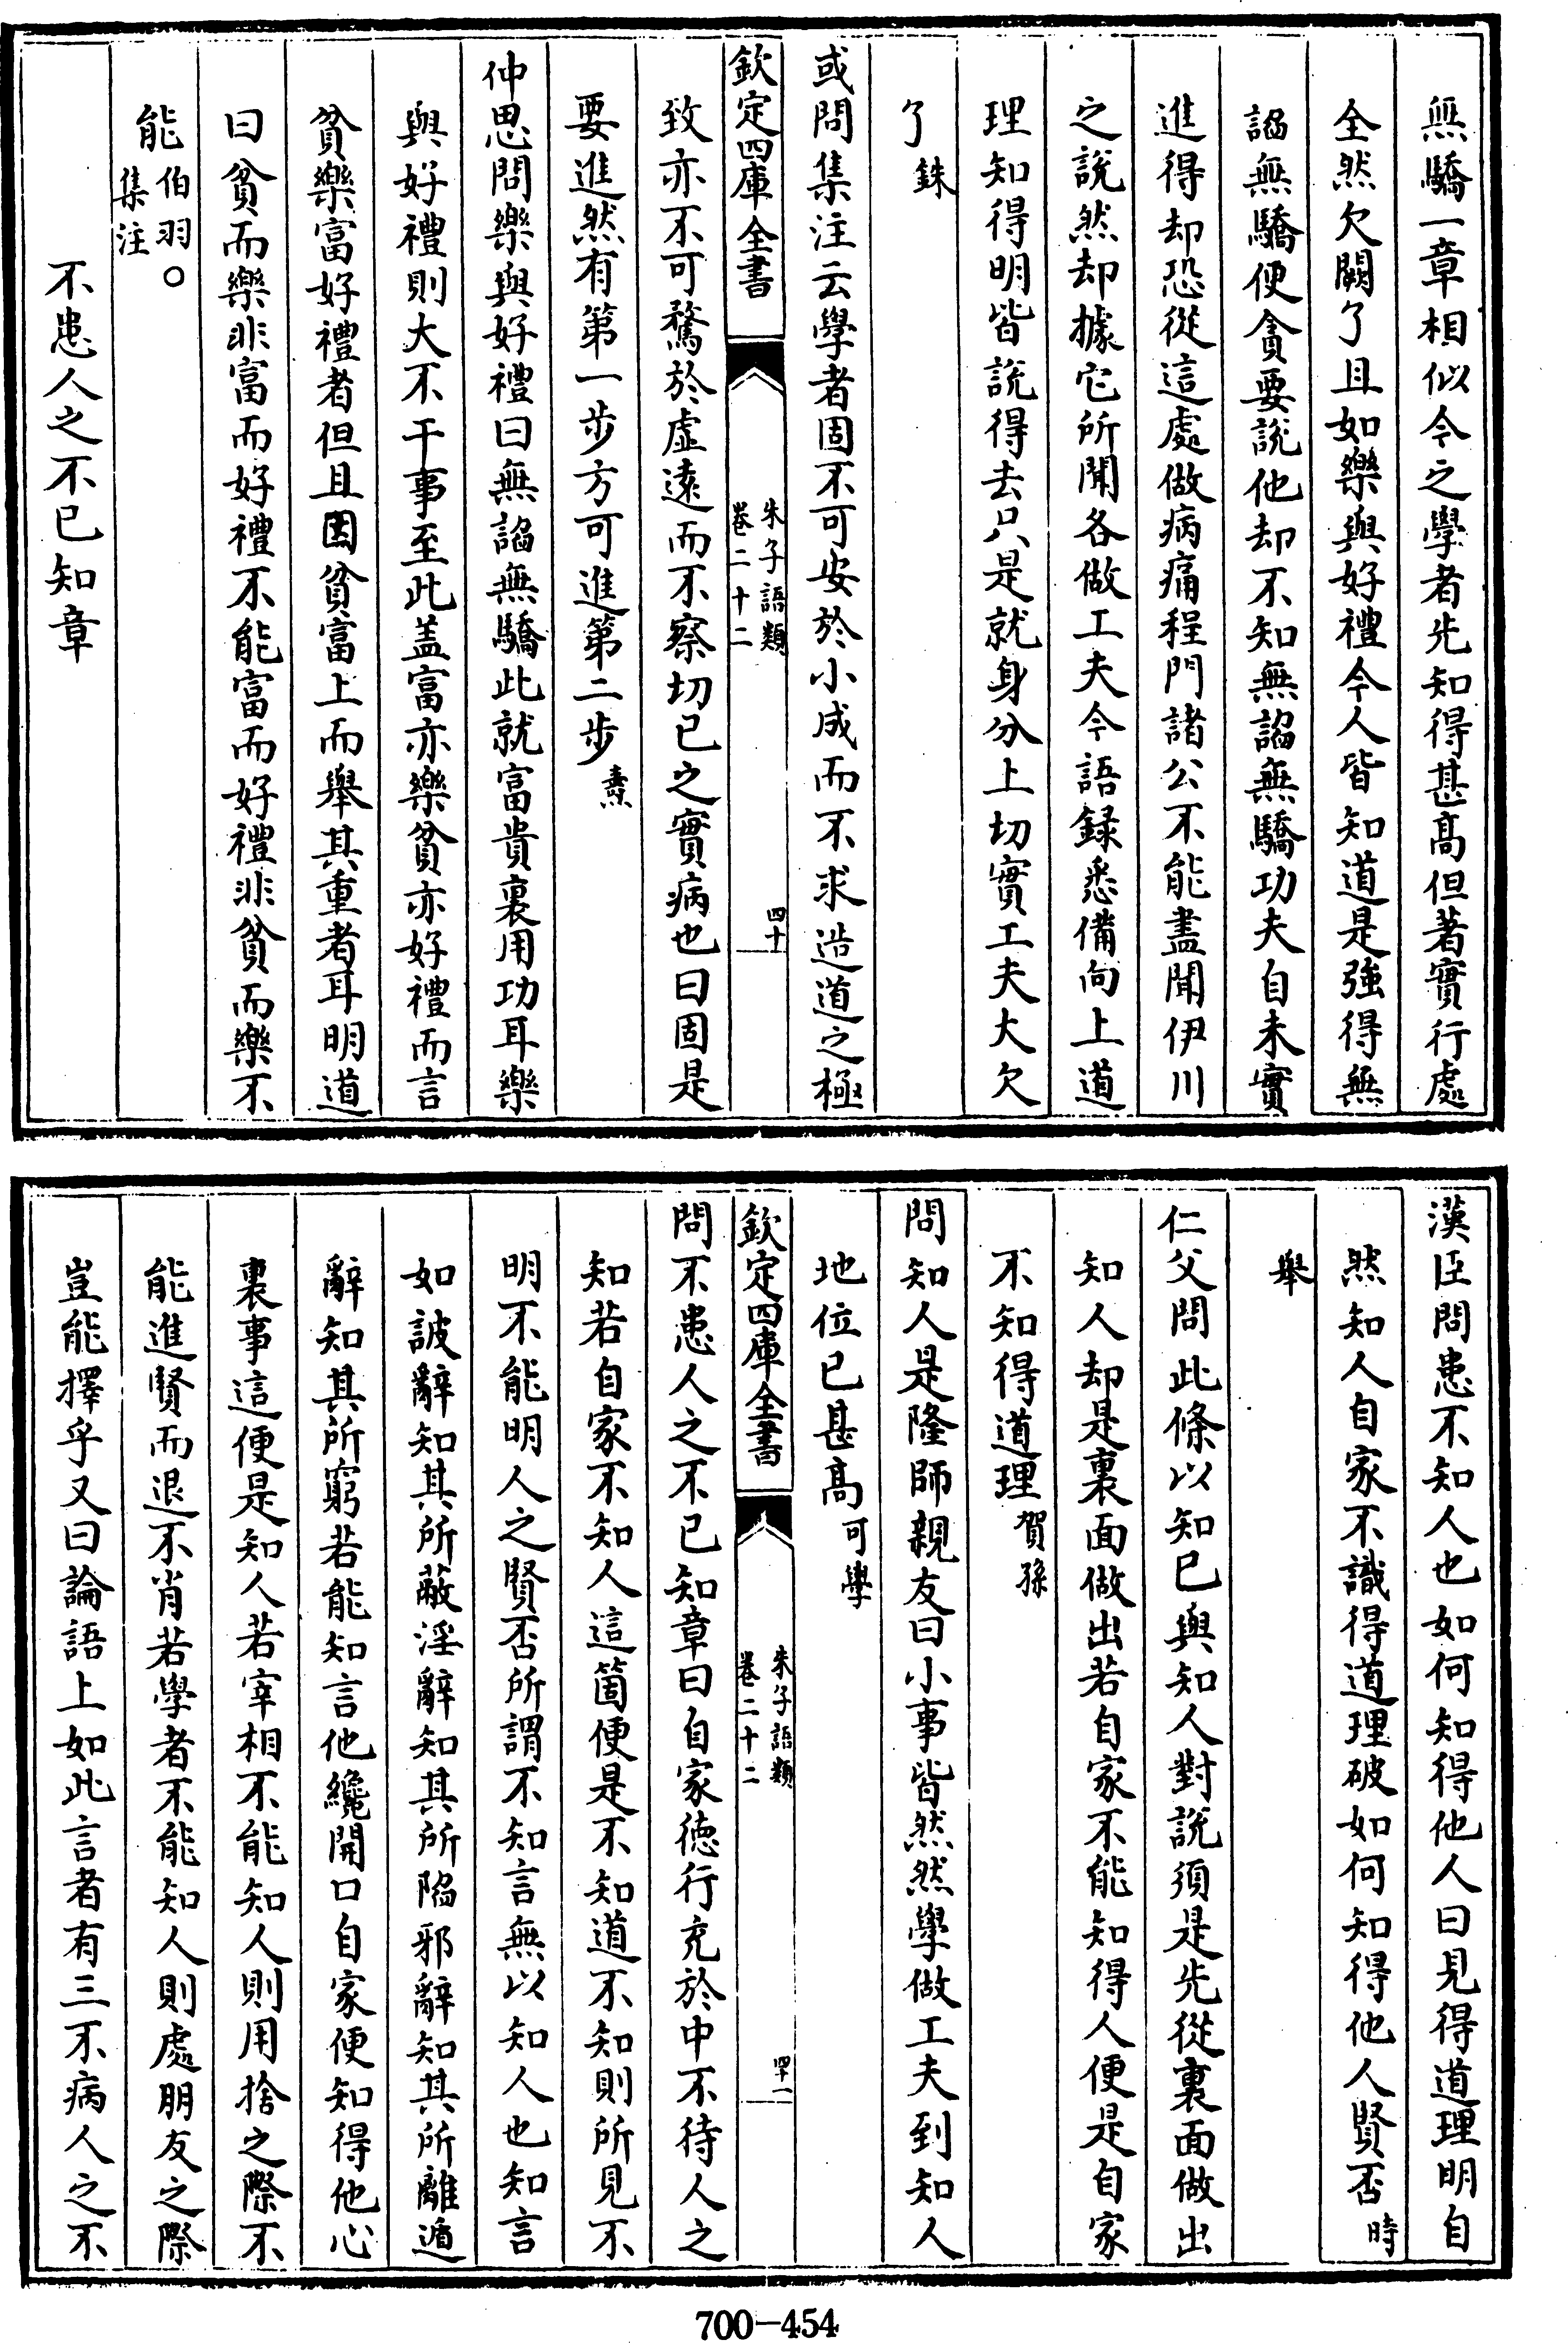 無驕一章相似今之學者先知得甚髙但著實行處
全然欠闕了且如樂與好禮今人皆知道是強得無
諂無驕便貪要說他却不知無諂無驕功夫自未實
進得却恐從這處做病痛程門諸公不能盡聞伊川
之說然却據它所聞各做工夫今語録悉備向上道
理知得明皆說得去只是就身分上切實工夫大欠
了銖
或問集注云學者固不可安於小成而不求造道之極
欽定四庫全書
朱子語類
卷二十二
四十
致亦不可騖於虛遠而不察切已之實病也曰固是
要進然有第一步方可進第二步燾
仲思問樂與好禮曰無諂無驕此就富貴裏用功耳樂
與好禮則大不干事至此盖富亦樂貧亦好禮而言
貧樂富好禮者但且因貧富上而舉其重者耳明道
曰貧而樂非富而好禮不能富而好禮非貧而樂不
能伯羽○集注
不患人之不已知章
漢臣問患不知人也如何知得他人曰見得道理明自
然知人自家不識得道理破如何知得他人賢否時
舉
仁父問此條以知已與知人對說須是先從裏面做出
知人却是裏面做出若自家不能知得人便是自家
不知得道理賀孫
問知人是隆師親友曰小事皆然然學做工夫到知人
地位已甚髙可學
欽定四庫全書
朱子語類
卷二十二
四十一
問不患人之不已知章曰自家徳行充於中不待人之
知若自家不知人這箇便是不知道不知則所見不
明不能明人之賢否所謂不知言無以知人也知言
如詖辭知其所蔽淫辭知其所陷邪辭知其所離遁
辭知其所窮若能知言他纔開口自家便知得他心
裏事這便是知人若宰相不能知人則用捨之際不
能進賢而退不肖若學者不能知人則處朋友之際
豈能擇乎又曰論語上如此言者有三不病人之不
700-454